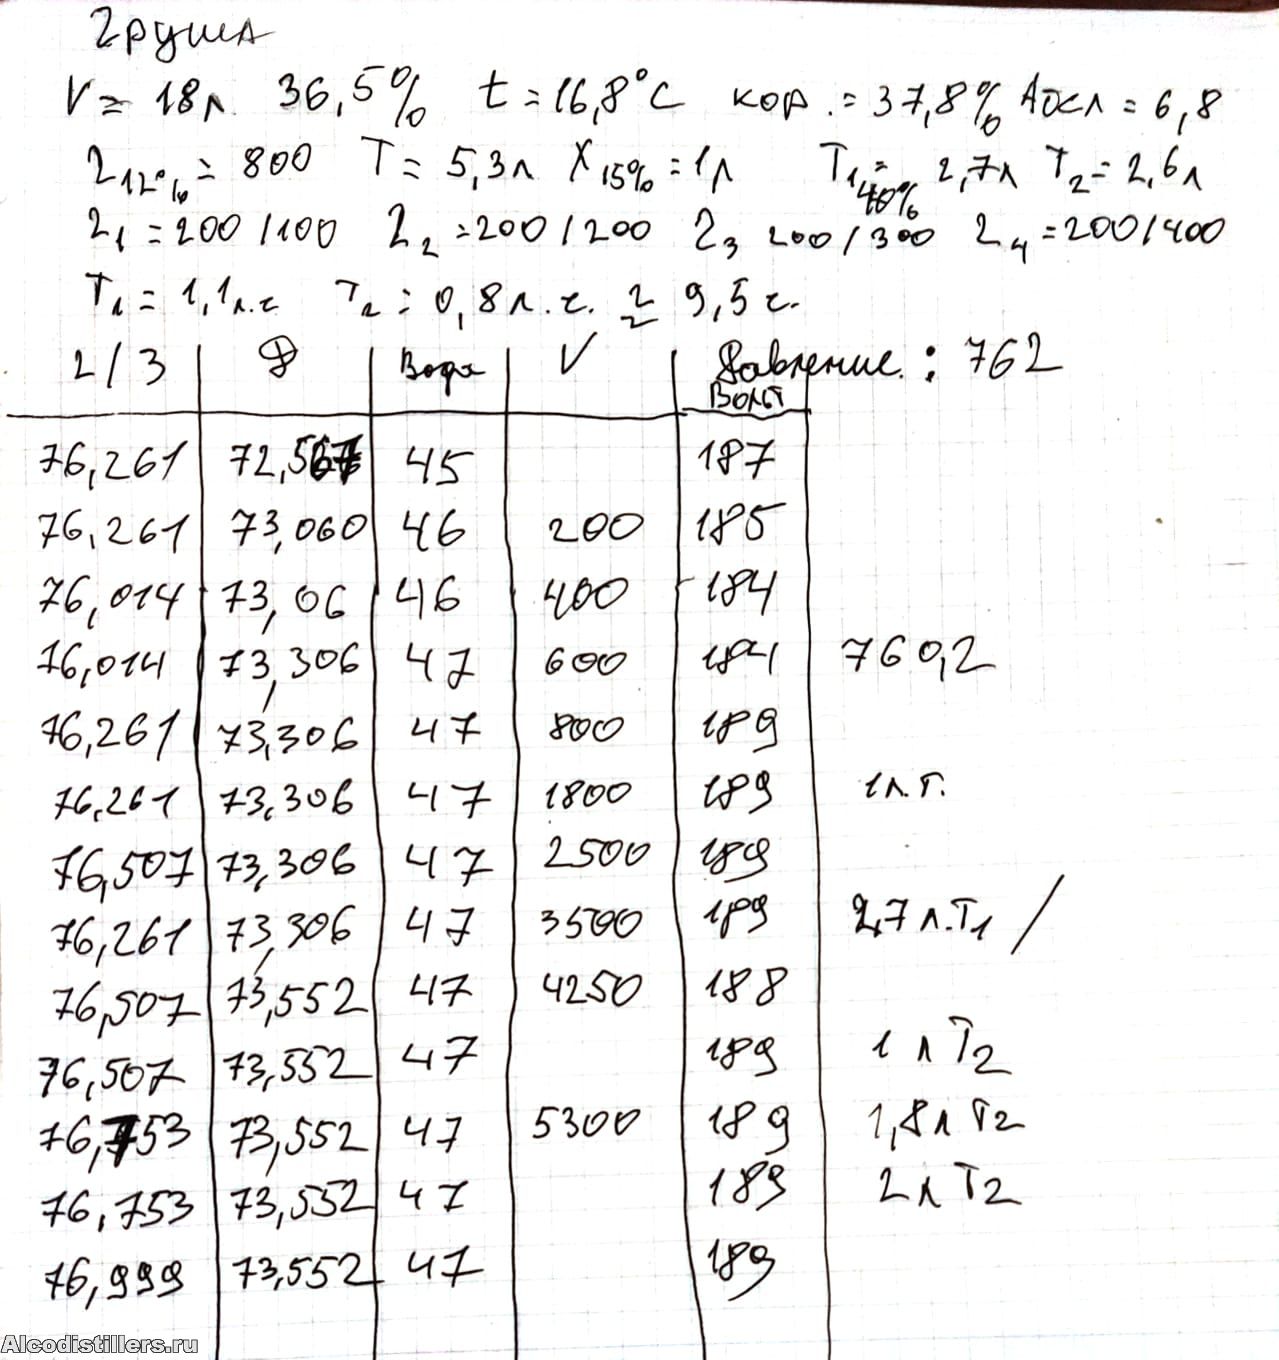 Груша
V = 18л. 36,5% t = 16,8°C кор. = 37,8% Абсл = 6,8
Г12% = 800 T = 5,3л X15% = 1л T1 40% = 2,7л T2 = 2,6л
Г1 = 200/100 Г2 = 200/200 Г3 200/300 Г4 = 200/400
T1 = 1,1л.ч T2 = 0,8л.ч. 9,5ч.
2/3 Ф Вода V Давление: 762
Вольт
76,261 72,567 45 187
76,261 73,060 46 200 185
76,014 73,06 46 400 184
76,014 73,306 47 600 184 760,2
76,261 73,306 47 800 189
76,261 73,306 47 1800 189 1л.Т.
76,507 73,306 47 2500 189
76,261 73,306 47 3500 189 2,7л.T1 /
76,507 73,552 47 4250 188
76,507 73,552 47 189 1л T2
76,753 73,552 47 5300 189 1,8л T2
76,753 73,552 47 189 2л T2
76,999 73,552 47 189
Alcodistillers.ru